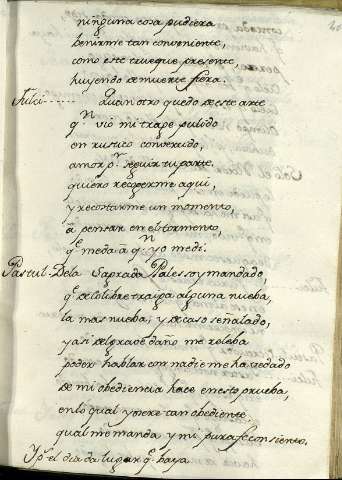 ninguna cosa pudiera
benirme tan conveniente,
como este trueque presente,
huyendo de muerte fiera.
Fulci...... Quan otro quedo de este arte
q.n vió mi trage pulido
en rustico convertido,
amor p.r seguir tu parte.
quiero recogerme aqui,
y recostarme un momento,
a pensar en el tormento,
q.e me da a q.n yo me di.
Pastul. De la Sagrada Pales soy mandado,
q.e del olibre traiga alguna nueba,
la mas nueba, y de caso señalado,
y asi del grave daño me releba
poder hablar con nadie me ha vedado
de mi obediencia hace en esto prueba,
en lo qual yo sere tan obediente
qual me manda y mi pura fe consiente.
Y p.r el dia da lugar q.e haya